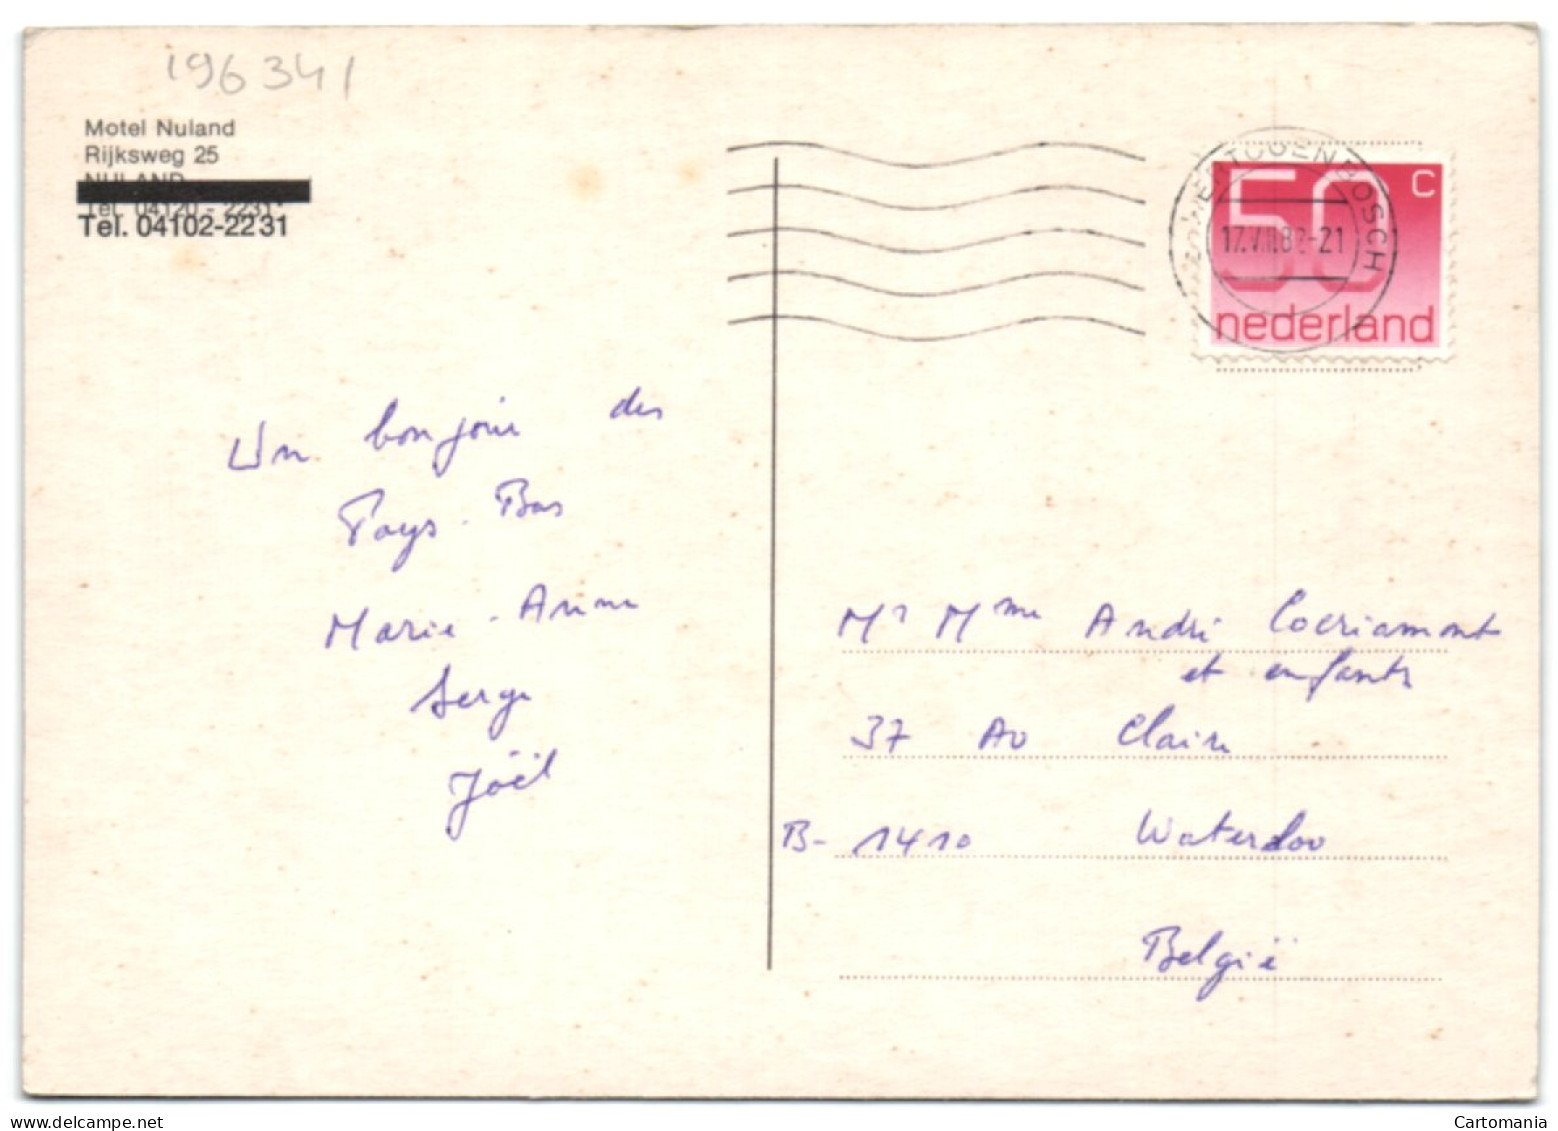 196341
Motel Nuland
Rijksweg 25
NULAND
Tel. 04120 - 2231*
Tel. 04102-2231
HERTOGENBOSCH
17.VII.8 -21
50 C
nederland
Un bonjour des
Pays-Bas
Marie-Anne
Serge
Joël
Mr Mme André Coeriamont
et enfants
37 Av Claire
B-1410 Waterloo
België
Cartomania